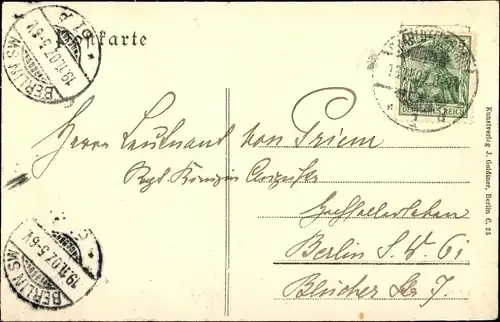 Postkarte
BERLIN SW
19.11.07. 5-6V.
DEUTSCHES REICH
Herrn Leutnant von Priem
Regt. Königin Augusta
Berlin S. W. 61
Blücher Str 7.
BERLIN SW
19.11.07. 5-6V.
Kunstverlag J. Goldiner, Berlin C. 25